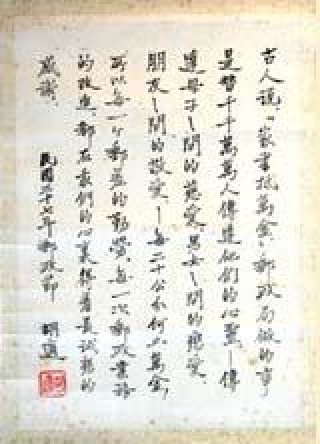 古人說「家書抵萬金」郵政局做的事
是替千千萬萬人傳達他們的心聲——傳
達母子之間的慈愛、男女之間的戀愛、
朋友之間的敬愛——每二十公分何止萬金，
所以每一个郵差的勤勞、每一次郵政業務
的改良，都在我們的心裏得着最誠懇的
感謝、
民国三十七年郵政節 胡適